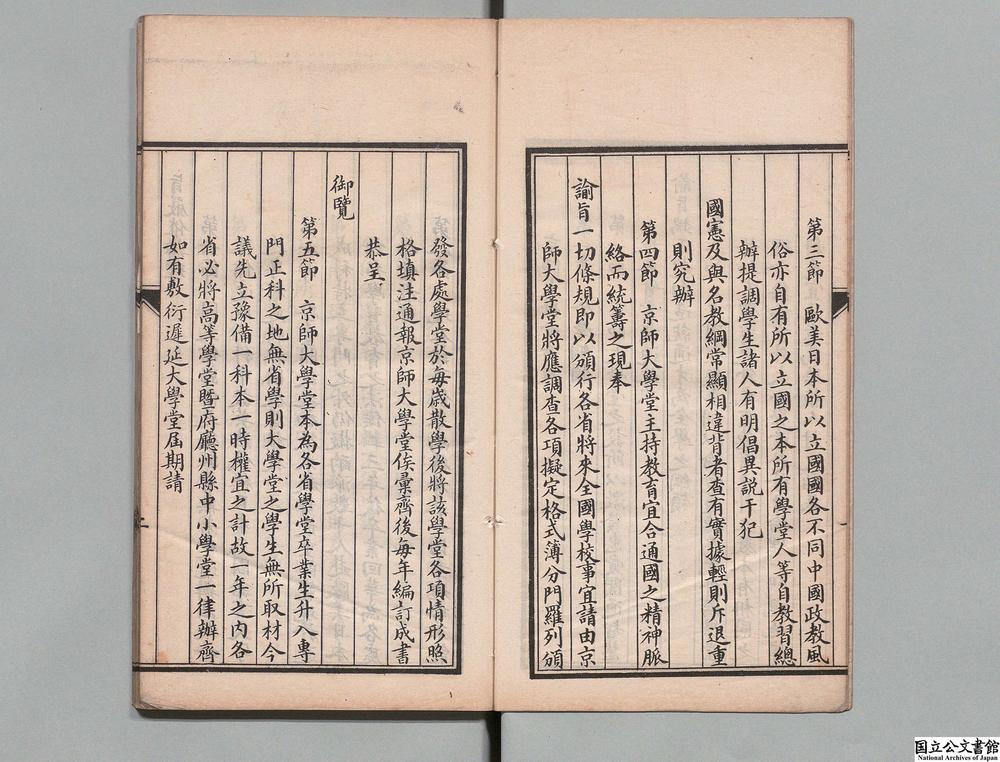 第三節　歐美日本所以立國國各不同中國政教風
俗亦自有所以立國之本所有學堂人等自教習總
辦提調學生諸人有明倡異說干犯
國憲及與名教綱常顯相違背者查有實據輕則斥退重
則究辦
第四節　京師大學堂主持教育宜合通國之精神脈
絡而統籌之現奉
諭旨一切條規即以頒行各省將來全國學校事宜請由京
師大學堂將應調查各項擬定格式簿分門羅列頒
發各處學堂於每歲散學後將該學堂各項情形照
格填注通報京師大學堂俟彙齊後每年編訂成書
恭呈
御覽
第五節　京師大學堂本為各省學堂卒業生升入專
門正科之地無省學則大學堂之學生無所取材今
議先立豫備一科本一時權宜之計故一年之內各
省必將高等學堂暨府廳州縣中小學堂一律辦齊
如有敷衍遲延大學堂屆期請
国立公文書館
National Archives of Japan